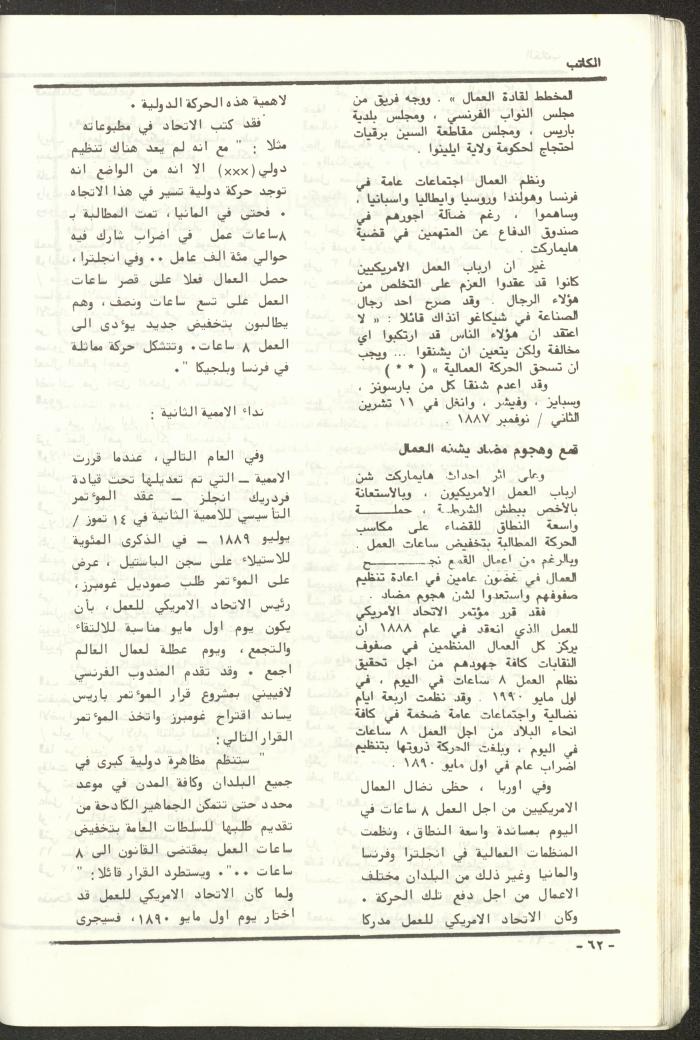 الكاتب
المخطط لقادة العمال » . ووجه فريق من
مجلس النواب الفرنسي ، ومجلس بلدية
باريس ، ومجلس مقاطعة السين برقيات
احتجاج لحكومة ولاية ايلينوا .
ونظم العمال اجتماعات عامة في
فرنسا وهولندا وروسيا وايطاليا واسبانيا ،
وساهموا ، رغم ضآلة اجورهم في
صندوق الدفاع عن المتهمين في قضية
هايماركت .
غير ان ارباب العمل الأمريكيين
كانوا قد عقدوا العزم على التخلص من
هؤلاء الرجال . وقد صرح احد رجال
الصناعة في شيكاغو آنذاك قائلا : « لا
اعتقد ان هؤلاء الناس قد ارتكبوا اي
مخالفة ولكن يتعين ان يشنقوا ... ويجب
ان تسحق الحركة العمالية » ( * * )
وقد اعدم شنقا كل من بارسونز ،
وسبايز ، وفيشر ، وانغل في ١١ تشرين
الثاني / نوفمبر ١٨٨٧ .
قمع وهجوم مضاد يشنه العمال
وعلى اثر احداث هايماركت شن
ارباب العمل الأمريكيون ، وبالأستعانة
بالأخص ببطش الشرطة ، حملـــــــة
واسعة النطاق للقضاء على مكاسب
الحركة المطالبة بتخفيض ساعات العمل .
وبالرغم من اعمال القمع نجـــــــــح
العمال في غضون عامين في اعادة تنظيم
صفوفهم واستعدوا لشن هجوم مضاد .
فقد قرر مؤتمر الاتحاد الأمريكي
للعمل الذي انعقد في عام ١٨٨٨ ان
يركز كل العمال المنظمين في صفوف
النقابات كافة جهودهم من اجل تحقيق
نظام العمل ٨ ساعات في اليوم ، في
اول مايو ١٩٩٠ . وقد نظمت اربعة ايام
نضالية واجتماعات عامة ضخمة في كافة
انحاء البلاد من اجل العمل ٨ ساعات
في اليوم ، وبلغت الحركة ذروتها بتنظيم
اضراب عام في اول مايو ١٨٩٠ .
وفي اوربا ، حظى نضال العمال
الامريكيين من اجل العمل ٨ ساعات في
اليوم بمساندة واسعة النطاق، ونظمت
المنظمات العمالية في انجلترا وفرنسا
والمانيا وغير ذلك من البلدان مختلف
الاعمال من اجل دفع تلك الحركة .
وكان الاتحاد الامريكي للعمل مدركا
لاهمية هذه الحركة الدولية .
فقد كتب الاتحاد في مطبوعاته
مثلا : " مع انه لم يعد هناك تنظيم
دولي(xxx) الا انه من الواضع انه
توجد حركة دولية تسير في هذا الاتجاه
. فحتى في المانيا، تمت المطالبة بـ
٨ساعات عمل في اضراب شارك فيه
حوالي مئة الف عامل .. وفي انجلترا،
حصل العمال فعلا على قصر ساعات
العمل على تسع ساعات ونصف، وهم
يطالبون بتخفيض جديد يؤدى الى
العمل ٨ ساعات. وتتشكل حركة مماثلة
في فرنسا وبلجيكا ".
نداء الاممية الثانية :
وفي العام التالي، عندما قررت
الاممية ــ التي تم تعديلها تحت قيادة
فردريك انجلز ــ عقد المؤتمر
التأسيسي للاممية الثانية في ١٤ تموز /
يوليو ١٨٨٩ ــ في الذكرى المئوية
للاستيلاء على سجن الباستيل ، عرض
على المؤتمر طلب صموديل غومبرز،
رئيس الاتحاد الامريكي للعمل، بأن
يكون يوم اول مايو مناسبة للالتقاء
والتجمع ، ويوم عطلة لعمال العالم
اجمع . وقد تقدم المندوب الفرنسي
لافييني بمشروع قرار المؤتمر باريس
يساند اقتراح غومبرز واتخذ المؤتمر
القرار التالي:
" ستنظم مظاهرة دولية كبرى في
جميع البلدان وكافة المدن في موعد
محدد حتى تتمكن الجماهير الكادحة من
تقديم طلبها للسلطات العامة بتخفيض
ساعات العمل بمقتضى القانون الى ٨
ساعات ..". ويستطرد القرار قائلا: "
ولما كان الاتحاد الامريكي للعمل قد
اختار يوم اول مايو ١٨٩٠، فسيجرى
- ٦٢ -